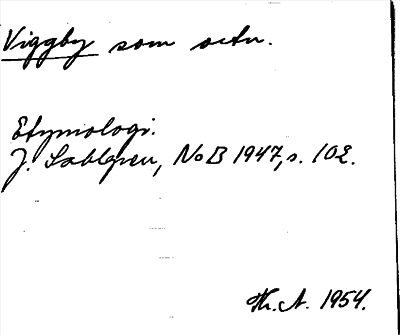 Viggby som ortn.
Etymologi.
J. Sahlgren, NoB 1947, s. 102.
Hr. A. 1954.